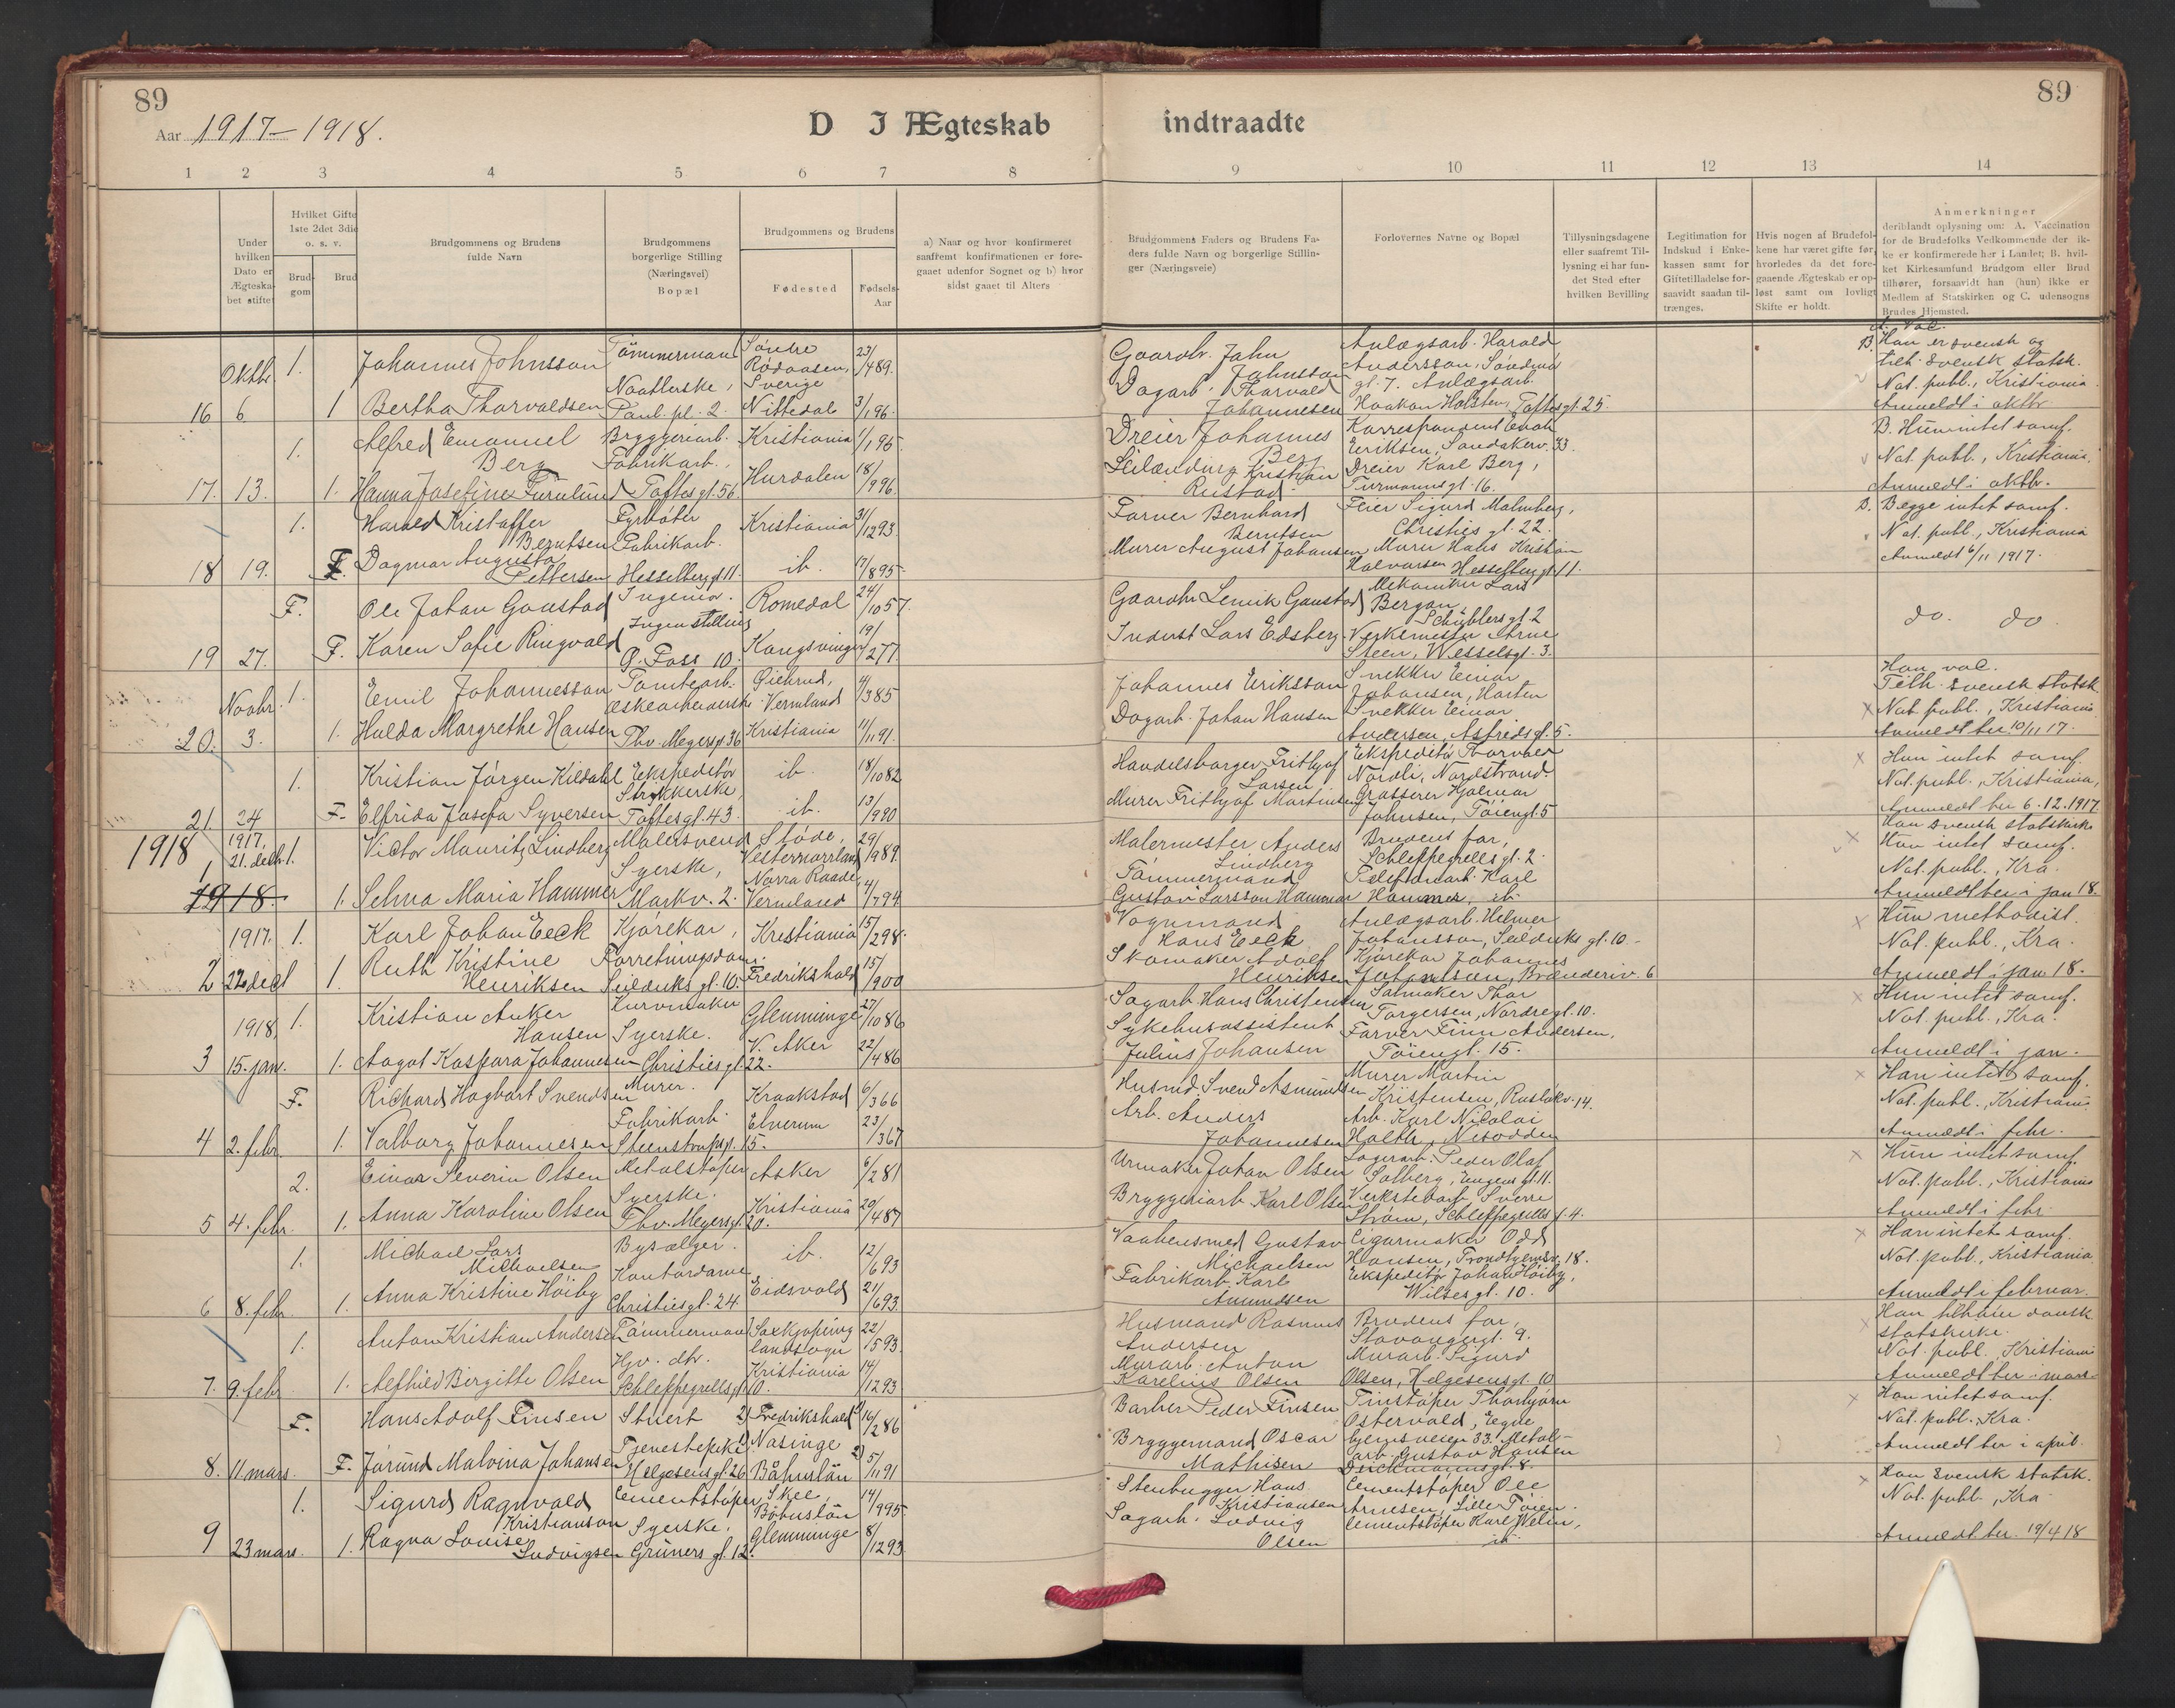 89
89
Aar 1917-1918.
D I Ægteskab indtraadte
1 2 3 4 5 6 7 8 9 10 11 12 13 14
Under hvilken Dato er Ægteskabet stiftet
Hvilket Gifte 1ste 2det 3die o. s. v.
Brudgom
Brud
Brudgommens og Brudens fulde Navn
Brudgommens borgerlige Stilling (Næringsvei) Bopæl
Brudgommens og Brudens
Fødested
Fødsels-Aar
a) Naar og hvor konfirmeret saafremt konfirmationen er foregaaet udenfor Sognet og b) hvor sidst gaaet til Alters
Brudgommens Faders og Brudens Faders fulde Navn og borgerlige Stillinger (Næringsveie)
Forlovernes Navne og Bopæl
Tillysningsdagene eller saafremt Tillysning ei har fundet Sted efter hvilken Bevilling
Legitimation for Indskud i Enkekassen samt for Giftetilladelse forsaavidt saadan tiltrænges.
Hvis nogen af Brudefolkene har været gifte før, hvorledes da det foregaaende Ægteskab er opløst samt om lovligt Skifte er holdt.
Anmerkninger deriblandt oplysning om: A. Vaccination for de Brudefolks Vedkommende der ikke er konfirmerede her i Landet; B. hvilket Kirkesamfund Brudgom eller Brud tilhører, forsaavidt han (hun) ikke er Medlem af Statskirken og C. udensogns Brudes Hjemsted.
Oktbr. 1. Johannes Johnsson Tømmermand Søndre Rödaasen, Sverige 23/4 89. Gaardbr. John Johnsson Anlægsarb. Harald Andersson, Søndre gt. 7. A. Vac. B. Han er svensk og tilh. svensk statsk.
16 6. 1 Bertha Thorvaldsen Naatlerske, Paul. pl. 2. Nittedal 3/1 96. Dagarb. Thorvald Johannesen Anlægsarb. Haakon Holsten, Toftes gt. 25. Not. publ., Kristiania Anmeldt i oktbr.
1. Alfred Emanuel Berg Bryggeriarb. Kristiania 1/1 95 Dreier Johannes Berg Korrespondent Eriksen, Sandakerv. 33. B. Hun intet samf.
17. 13. 1. Hanna Josefine Furulund Fabrikarb., Toftes gt. 56. Hurdalen 18/9 96. Kristian Rustad Dreier Karl Berg, gt. 16. Not. publ., Kristiania. Anmeldt i oktbr.
1. Harald Kristoffer Berntsen Fyrbøter Kristiania 31/12 93. Farver Bernhard Berntsen Feier Sigurd Malmberg, Christies gt. 22. B. Begge intet samf.
18 19. F. Dagmar Augusta Pettersen Fabrikarb. Hesselbergs gt. 11. ib. 17/8 95 Murer August Johansen Murer Hans Kristian Halvorsen Hesselbergs gt. 11. Not. publ., Kristiania Anmeldt 6/11 1917.
F. Ole Johan Gaustad Ingeniør. Romedal 24/10 57. Gaardbr. Lemik Gaustad Mekaniker Lars Bergan, Schüblers gt. 2 do. do
19 27. F. Karen Sofie Ringvold Ingen stilling O. Foss 10. Kongsvinger 19/2 77. Lars Edsberg Verkemester Arne Steen, Wessels gt. 3.
Novbr. 1. Emil Johannesson Tomtearb. Vermland 4/3 85 Johannes Eriksson Snekker Einar Johansen, Han vac. Tilh. svensk statsk.
20. 3. 1. Hulda Margrethe Hansen Thv. Meyers gt 36 Kristiania 11/11 91. Dagarb. Johan Hansen Snekker Einar Andersen, Asfreds gt. 5. Not. publ., Kristiania Anmeldt her 10/11 17.
1. Kristian Jörgen Kildahl Ekspeditör ib. 18/10 82 Handelsborger Frithjof Larsen Ekspeditör Thorvald Nordli, Nordstrand. Han intet samf.
21. 24 F. Elfrida Josefa Syversen Strykkerske, Toftes gt. 43. ib. 13/9 90 Murer Frithjof Martinsen Grosserer Hjalmar Johnsen, Töiengt. 5 Not. publ., Kristiania, Anmeldt her 6.12.1917.
1918 1 1917, 21. decbr. 1. Victor Mauritz Lindberg Malersvend Stöde, Vesternorrland 29/9 89. Malermester Anders Lindberg Brudens far, Schleppegrells gt. 2. Han svensk statskirke Hun intet samf.
1918. 1. Selma Maria Hammer Syerske, Markv. 2. Norra Raade, Vermland 4/7 94 Tömmermand Gustav Larsson Hammar Telefonarb. Karl Hammer, ib. Not. publ., Kra. Anmeldt her i jan 18.
1917. 1. Karl Johan Eeck Kjörekar, Kristiania 15/2 98. Vognmand Hans Eeck Anlægsarb. Helmer Johansson, Seilduks gt. 10. Hun methodist.
2 22 dec 1 Ruth Kristine Henriksen Forretningsdame. Seilduks gt. 10. Fredrikshald 15/9 00 Skomaker Adolf Henriksen Kjörekar Johannes Johansson, Brænderiv. 6 Not. publ., Kra. Anmeldt i jan 18.
1918, 1. Kristian Anker Hansen Kurvmaker Glemminge 27/10 86 Sagarb. Hans Christensen Salmaker Thor Torgersen, Nordregt. 10. Hun intet samf.
3 15. jan. 1. Aagot Kaspara Johannesen Syerske. Christies gt. 22. V. Aker 22/4 86 Sykehusassistent Julius Johansen Farver Finn Andersen, Töiengt. 15. Not. publ., Kra. Anmeldt i jan.
F. Richard Hagbart Svendsen Murer. Kraakstad 6/3 66 Husmd. Svend Asmundsen Murer Martin Kristensen, Rustökv. 14. Han intet samf.
4 2. febr. 1. Valborg Johannesen Fabrikarb. Steenstrups gt. 15. Elverum 23/3 67 Arb. Anders Johannesen Arb. Karl Nicolai Holth, Nesodden Not. publ., Kristiania Anmeldt i febr.
2. Einar Severin Olsen Metalstöper Asker 6/2 81 Urmaker Johan Olsen Lagerarb. Peder Olaf Solberg, Eugens gt. 11. Hun intet samf.
5 4. febr. 1. Anna Karoline Olsen Syerske. Thv. Meyers gt. 20. Kristiania 20/4 87 Bryggeriarb. Karl Olsen Verkstedarb. Sverre Ström, Schleppegrells gt. 4. Not. publ., Kristiania Anmeldt i febr.
1. Michael Lars Michaelsen Bysælger. ib. 12/6 93 Vaabensmed Gustav Michaelsen Cigarmaker Odd Hansen, Trondhjemsv. 18. Han intet samf.
6 8. febr. 1. Anna Kristine Höiby Kontordame Christies gt. 24. Eidsvold 21/6 93. Fabrikarb. Karl Amundsen Ekspeditör Johan Höiby, Wilses gt. 10. Not. publ., Kristiania Anmeldt i februar.
1. Anton Kristian Andersen Tömmermand Saxkjøping landsogn 22/5 93. Husmand Rasmus Andersen Brudens far, Stavangergt. 9. Han tilhører dansk statskirke.
7. 9. febr. 1. Alfhild Birgitte Olsen Hjv. dtr. Schleppegrells gt. 10. Kristiania 14/12 93 Murarb. Anton Karelius Olsen Murarb. Sigurd Olsen, Helgesens gt. 10 Not. publ. Kristiania Anmeldt her i mars
F. Hans Adolf Finsen Stuert 2) Fredrikshald 16/2 86 Barber Peder Finsen Tinstöper Thorbjörn Ostervold, Egne hjemsveien 33. Han intet samf.
8. 11. mars. F. Jörund Malvina Johansen Tjenestepike Helgesens gt. 26 1) Nasinge Båhuslän 2) 5/11 91 Bryggemand Oscar Mathisen Metalarb. Gustav Hansen Deichmans gt. 8. Not. publ. Kra. Anmeldt her i april.
1. Sigurd Ragnvald Kristiansson Cementstöper Skee, Böhuslän 14/9 95. Stenhugger Hans Kristiansen Cementstöper Ole Arnesen, Lille Töien. Han svensk statsk.
9 23 mars. 1. Ragna Lovise Ludvigsen Syerske. Grüners gt. 12. Glemminge 8/12 93 Sagarb. Ludvig Olsen Cementstöper Karl Welin, ib. Not. publ., Kra Anmeldt her. 19/4 18